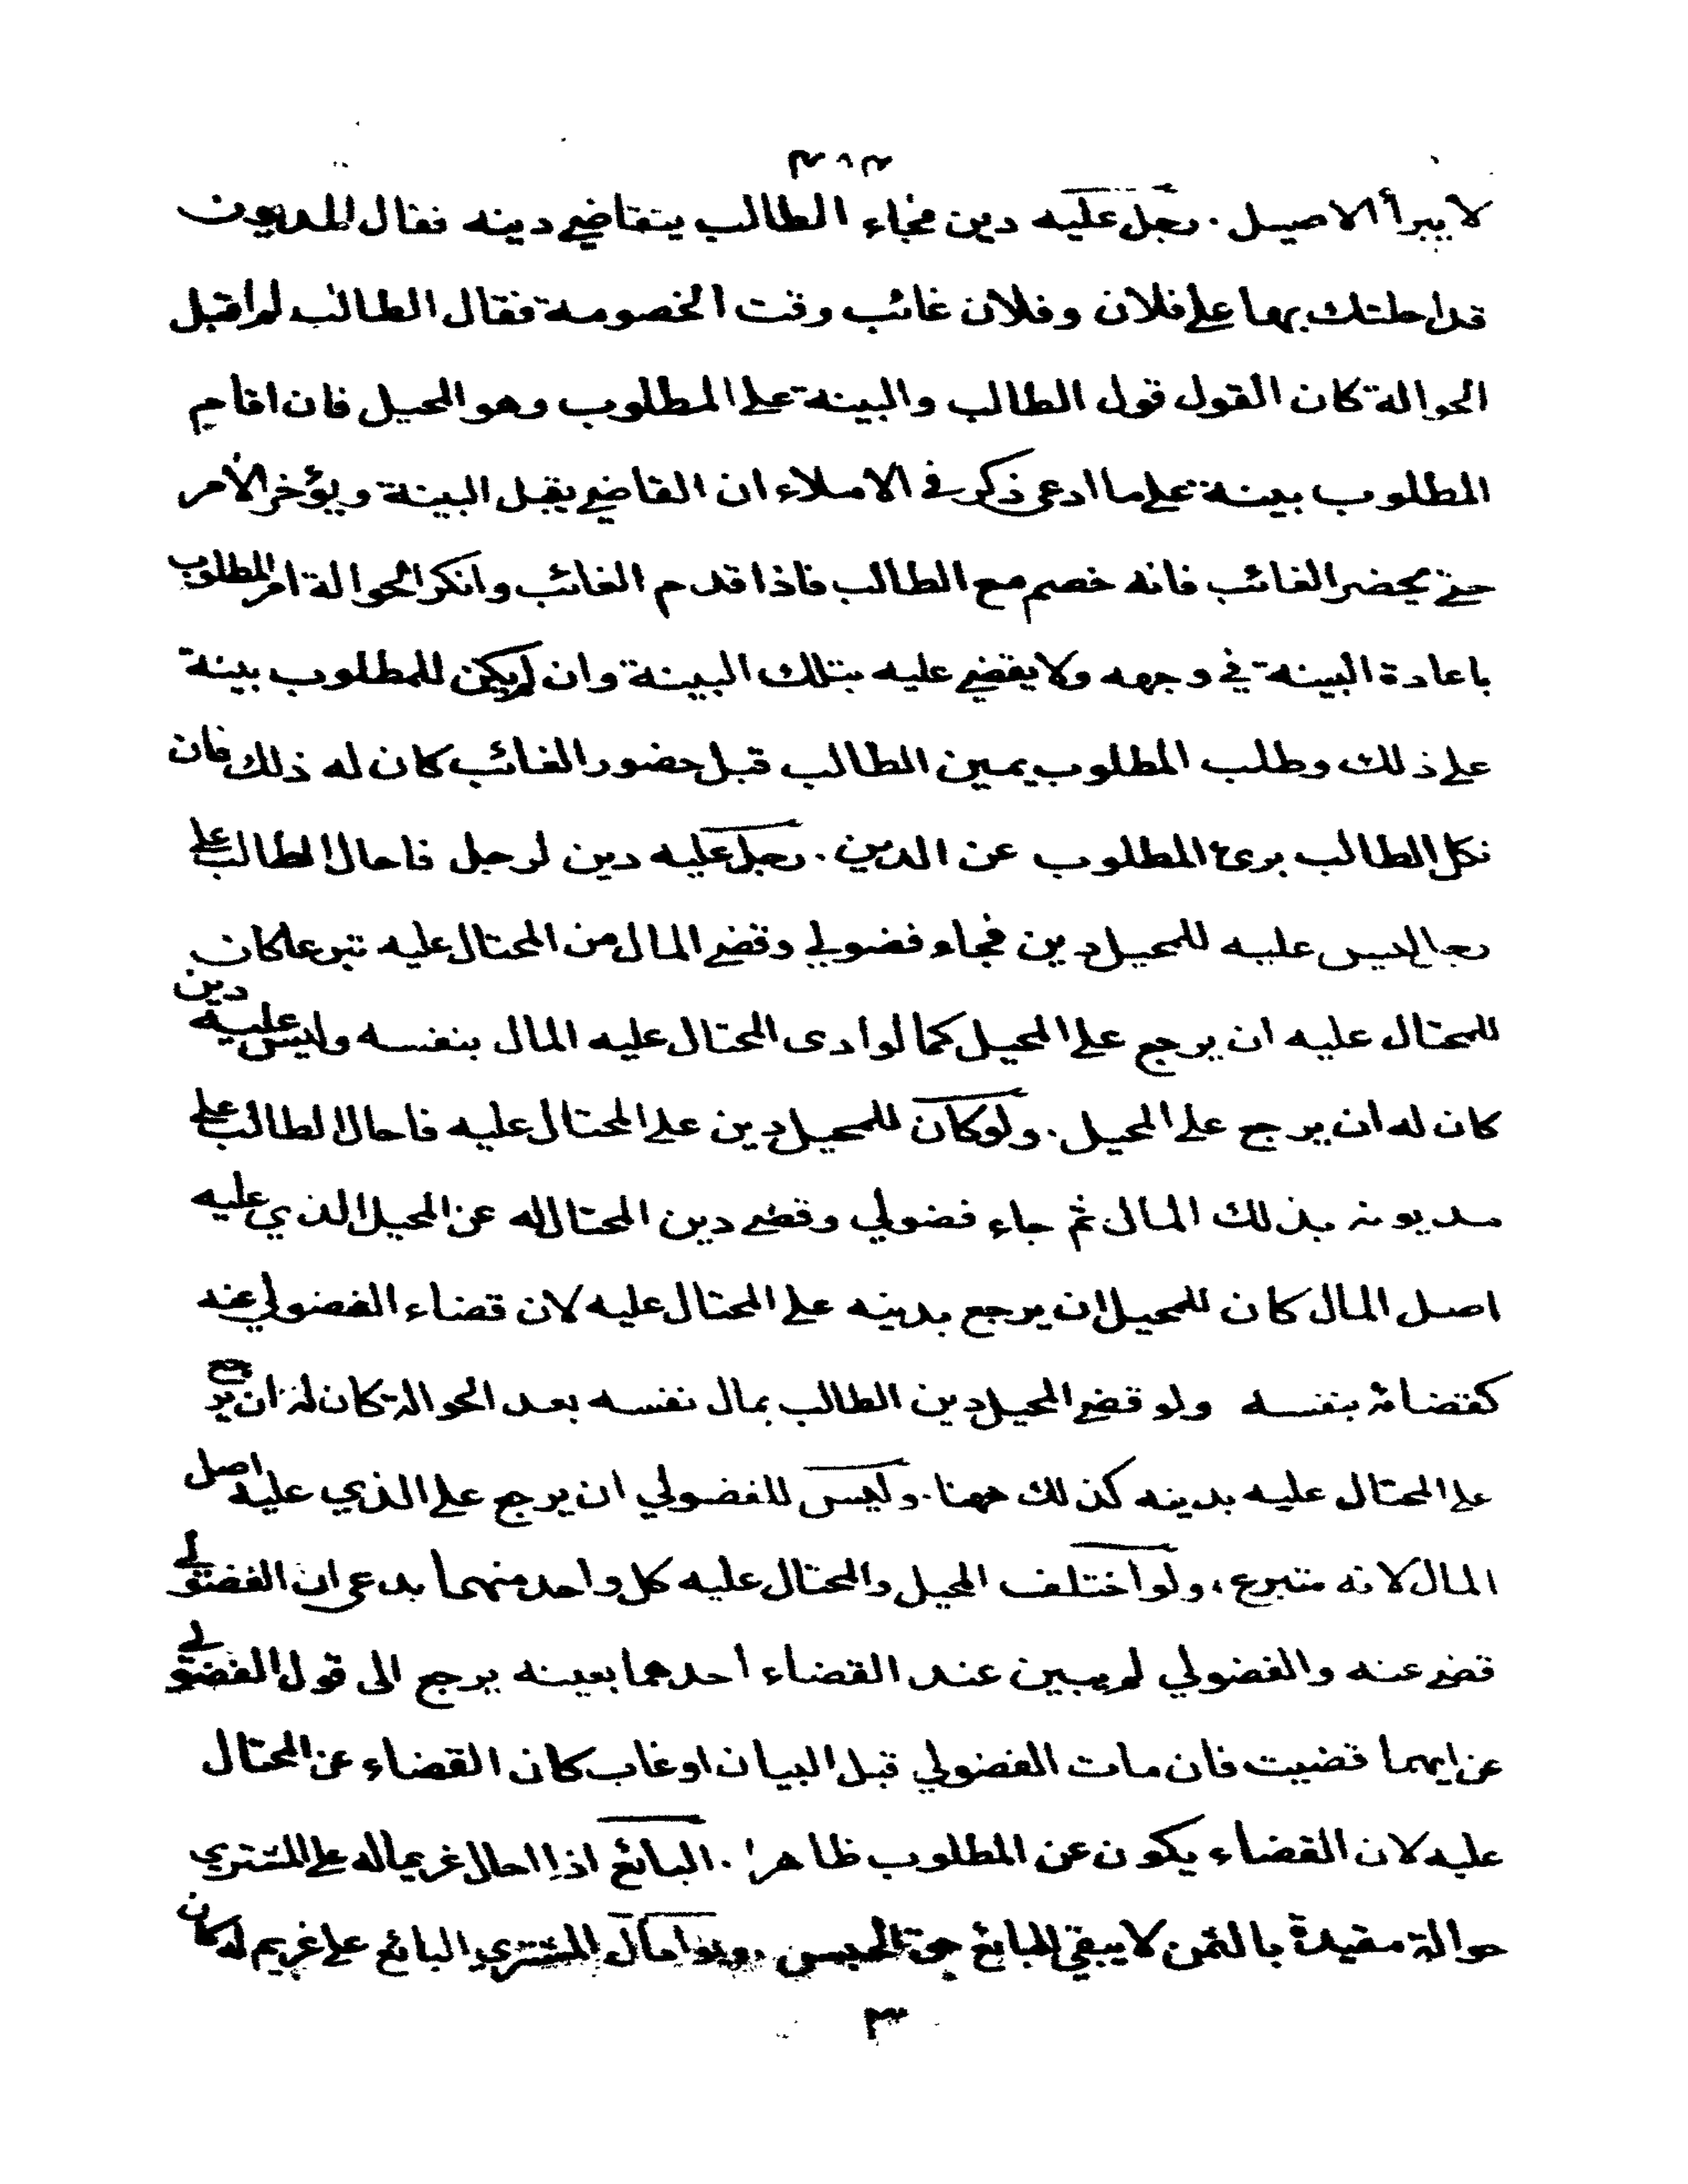 ٣٨٣
لا يبرأ الاصيل . رجل عليه دين فجاء الطالب يتقاضى دينه فقال المديون
قد احلتك بها على فلان وفلان غائب وقت الخصومة فقال الطالب لم اقبل
الحوالة كان القول قول الطالب والبينة على المطلوب وهو المحيل فان اقام
المطلوب بينة على ما ادعى ذكر في الاملاء ان القاضي يقبل البينة ويؤخر الأمر
حتى يحضر الغائب فانه خصم مع الطالب فاذا قدم الغائب وانكر الحوالة امر المطلوب
باعادة البينة في وجهه ولا يقضى عليه بتلك البينة وان لم يكن للمطلوب بينة
على ذلك وطلب المطلوب يمين الطالب قبل حضور الغائب كان له ذلك فان
نكل الطالب برئ المطلوب عن الدين . رجل عليه دين لرجل فاحال الطالب على
رجل ليس عليه للمحيل دين فجاء فضولي وقضى المال من المحتال عليه تبرعا كان
للمحتال عليه ان يرجع على المحيل كما لو ادى المحتال عليه المال بنفسه وليس عليه دين
كان له ان يرجع على المحيل . ولو كان للمحيل دين على المحتال عليه فاحال الطالب على
مديونه بذلك المال ثم جاء فضولي وقضى دين المحتال له عن المحيل الذي عليه
اصل المال كان للمحيل ان يرجع بدينه على المحتال عليه لان قضاء الفضولي عنه
كقضائه بنفسه ولو قضى المحيل دين الطالب بمال نفسه بعد الحوالة كان له ان يرجع
على المحتال عليه بدينه كذلك ههنا . وليس للفضولي ان يرجع على الذي عليه اصل
المال لانه متبرع ، ولو اختلف المحيل والمحتال عليه كل واحد منهما يدعى ان الفضولي
قضى عنه والفضولي لم يبين عند القضاء احدهما بعينه يرجع الى قول الفضولي
عن ايهما قضيت فان مات الفضولي قبل البيان او غاب كان القضاء عن المحتال
عليه لان القضاء يكون عن المطلوب ظاهرا . البائع اذا احال غريما له على المشتري
حوالة مقيدة بالثمن لا يبقى للبائع حق الحبس . ولو احال المشتري البائع على غريم له كان
٣